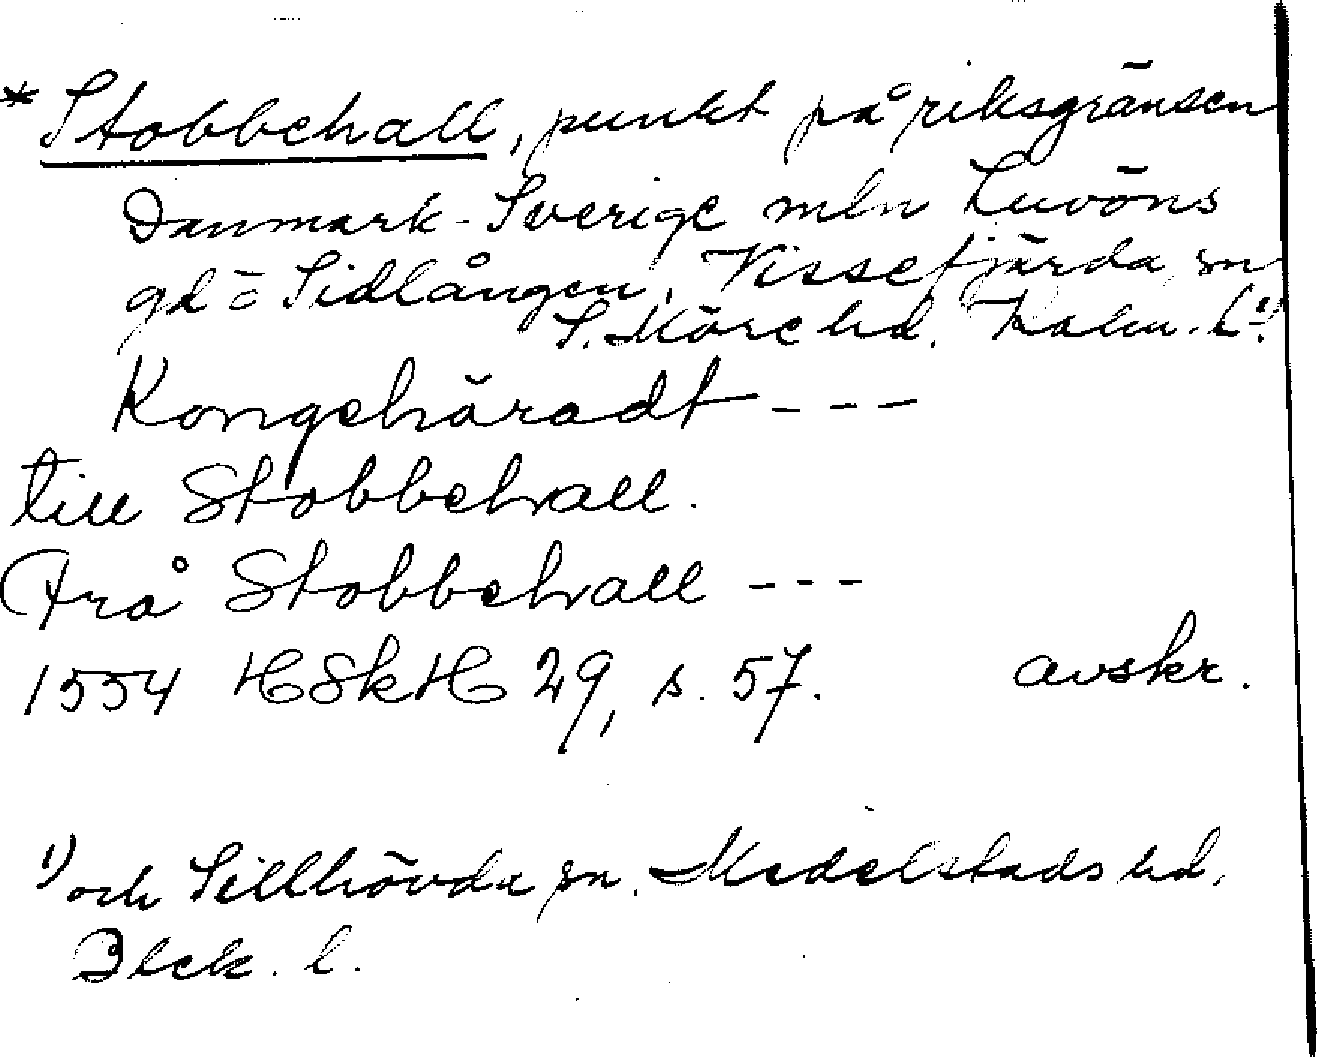 * Stobbehall, punkt på riksgränsen
Danmark-Sverige mln Luvöns
gd o Sidlången, Vissefjärda sn
S. Möre hd. Kalm. l. 1)
Kongehäradt ---
till Stobbehall.
Frå Stobbehall ---
1554 HSkH 29, s. 57. avskr.
1) och Sillhövda sn. Medelstads hd,
Blek. l.